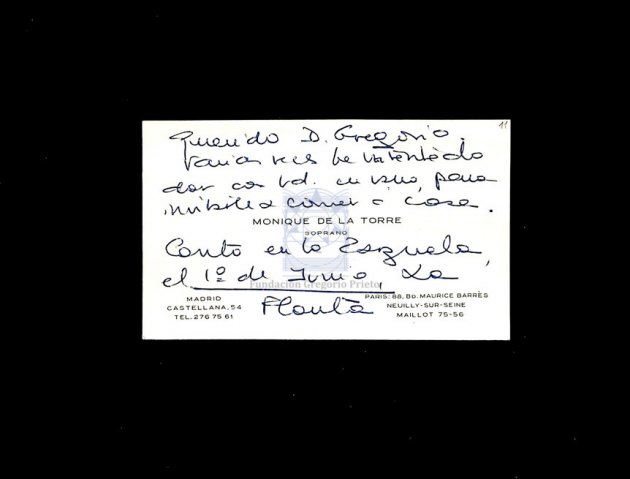 11
Querido D. Gregorio.
Varias veces he intentado
dar con Vd. en vano, para
invitarle a comer a casa.
MONIQUE DE LA TORRE
SOPRANO
Canto en la Zarzuela,
el 1º de Junio, La
Fundación Gregorio Prieto
Flauta
MADRID
CASTELLANA, 54
TEL. 276 75 61
PARIS: 88, BD. MAURICE BARRÈS
NEUILLY-SUR-SEINE
MAILLOT 75-56